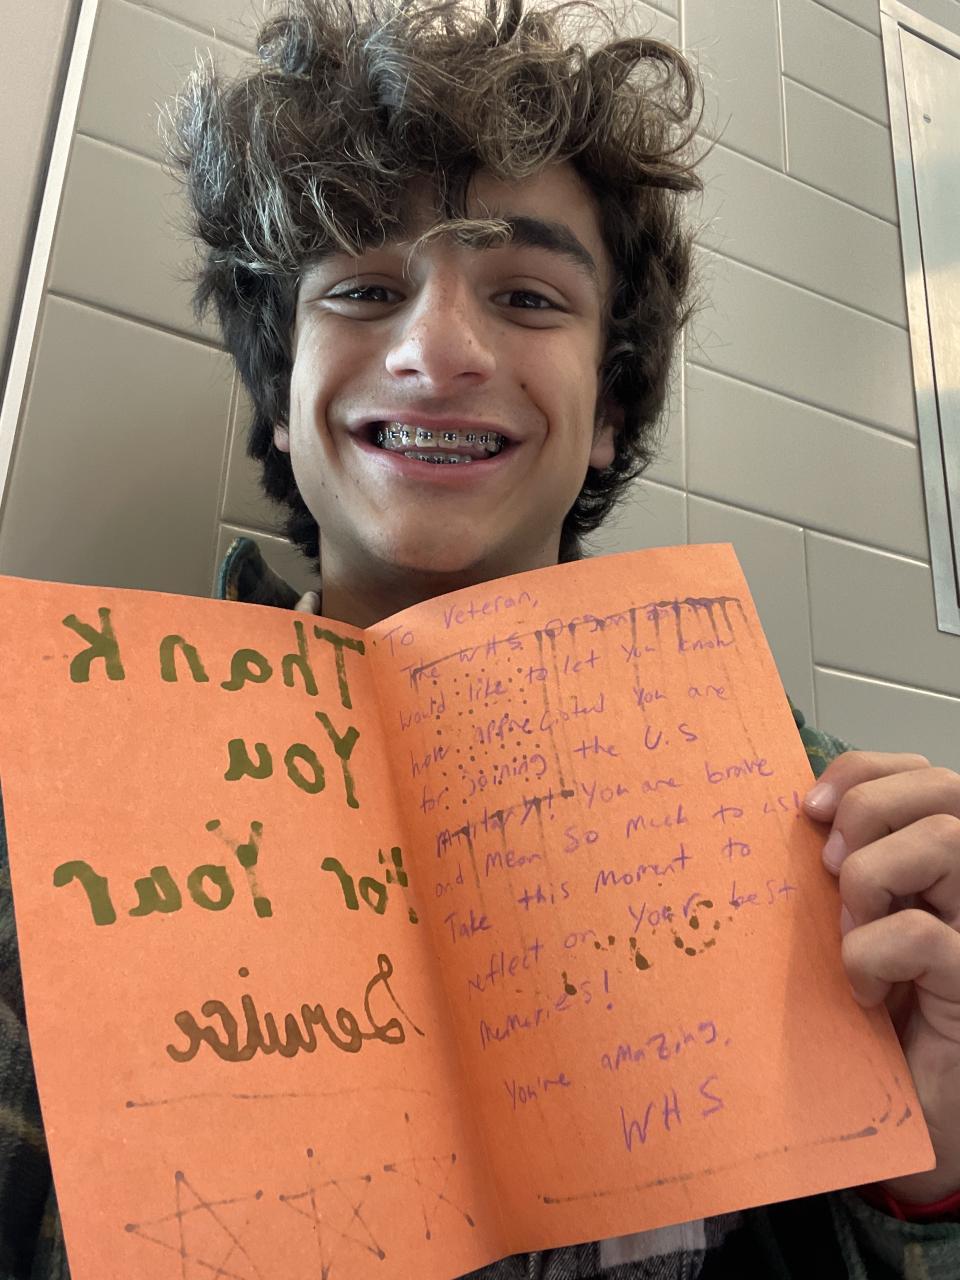 Thank
You
For Your
Service
To Veteran,
The WHS
would like to let you know
how appreciated you are
for joining the U.S
Military! You are brave
and mean so much to us!
Take this moment to
reflect on your best
memories!
You're amazing,
WHS